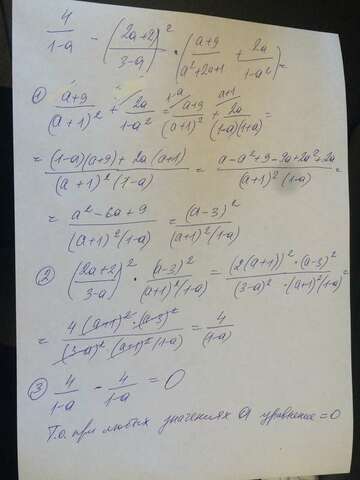 4/(1-a) - ((2a+2)/(3-a))² · ((a+9)/(a²+2a+1) + 2a/(1-a²)) =
① (a+9)/(a+1)² + 2a/(1-a²) = (a+9)/(a+1)² ^(1-a) + 2a/((1-a)(1+a)) ^(a+1) =
= ((1-a)(a+9) + 2a(a+1))/((a+1)²(1-a)) = (a-a²+9-9a+2a²+2a)/((a+1)²(1-a)) =
= (a²-6a+9)/((a+1)²(1-a)) = (a-3)²/((a+1)²(1-a))
② ((2a+2)/(3-a))² · (a-3)²/((a+1)²(1-a)) = ((2(a+1))²·(a-3)²)/((3-a)²·(a+1)²(1-a)) =
= (4(a+1)²·(a-3)²)/((3-a)²·(a+1)²(1-a)) = 4/(1-a)
③ 4/(1-a) - 4/(1-a) = 0
Т.о. при любых значениях a уравнение = 0